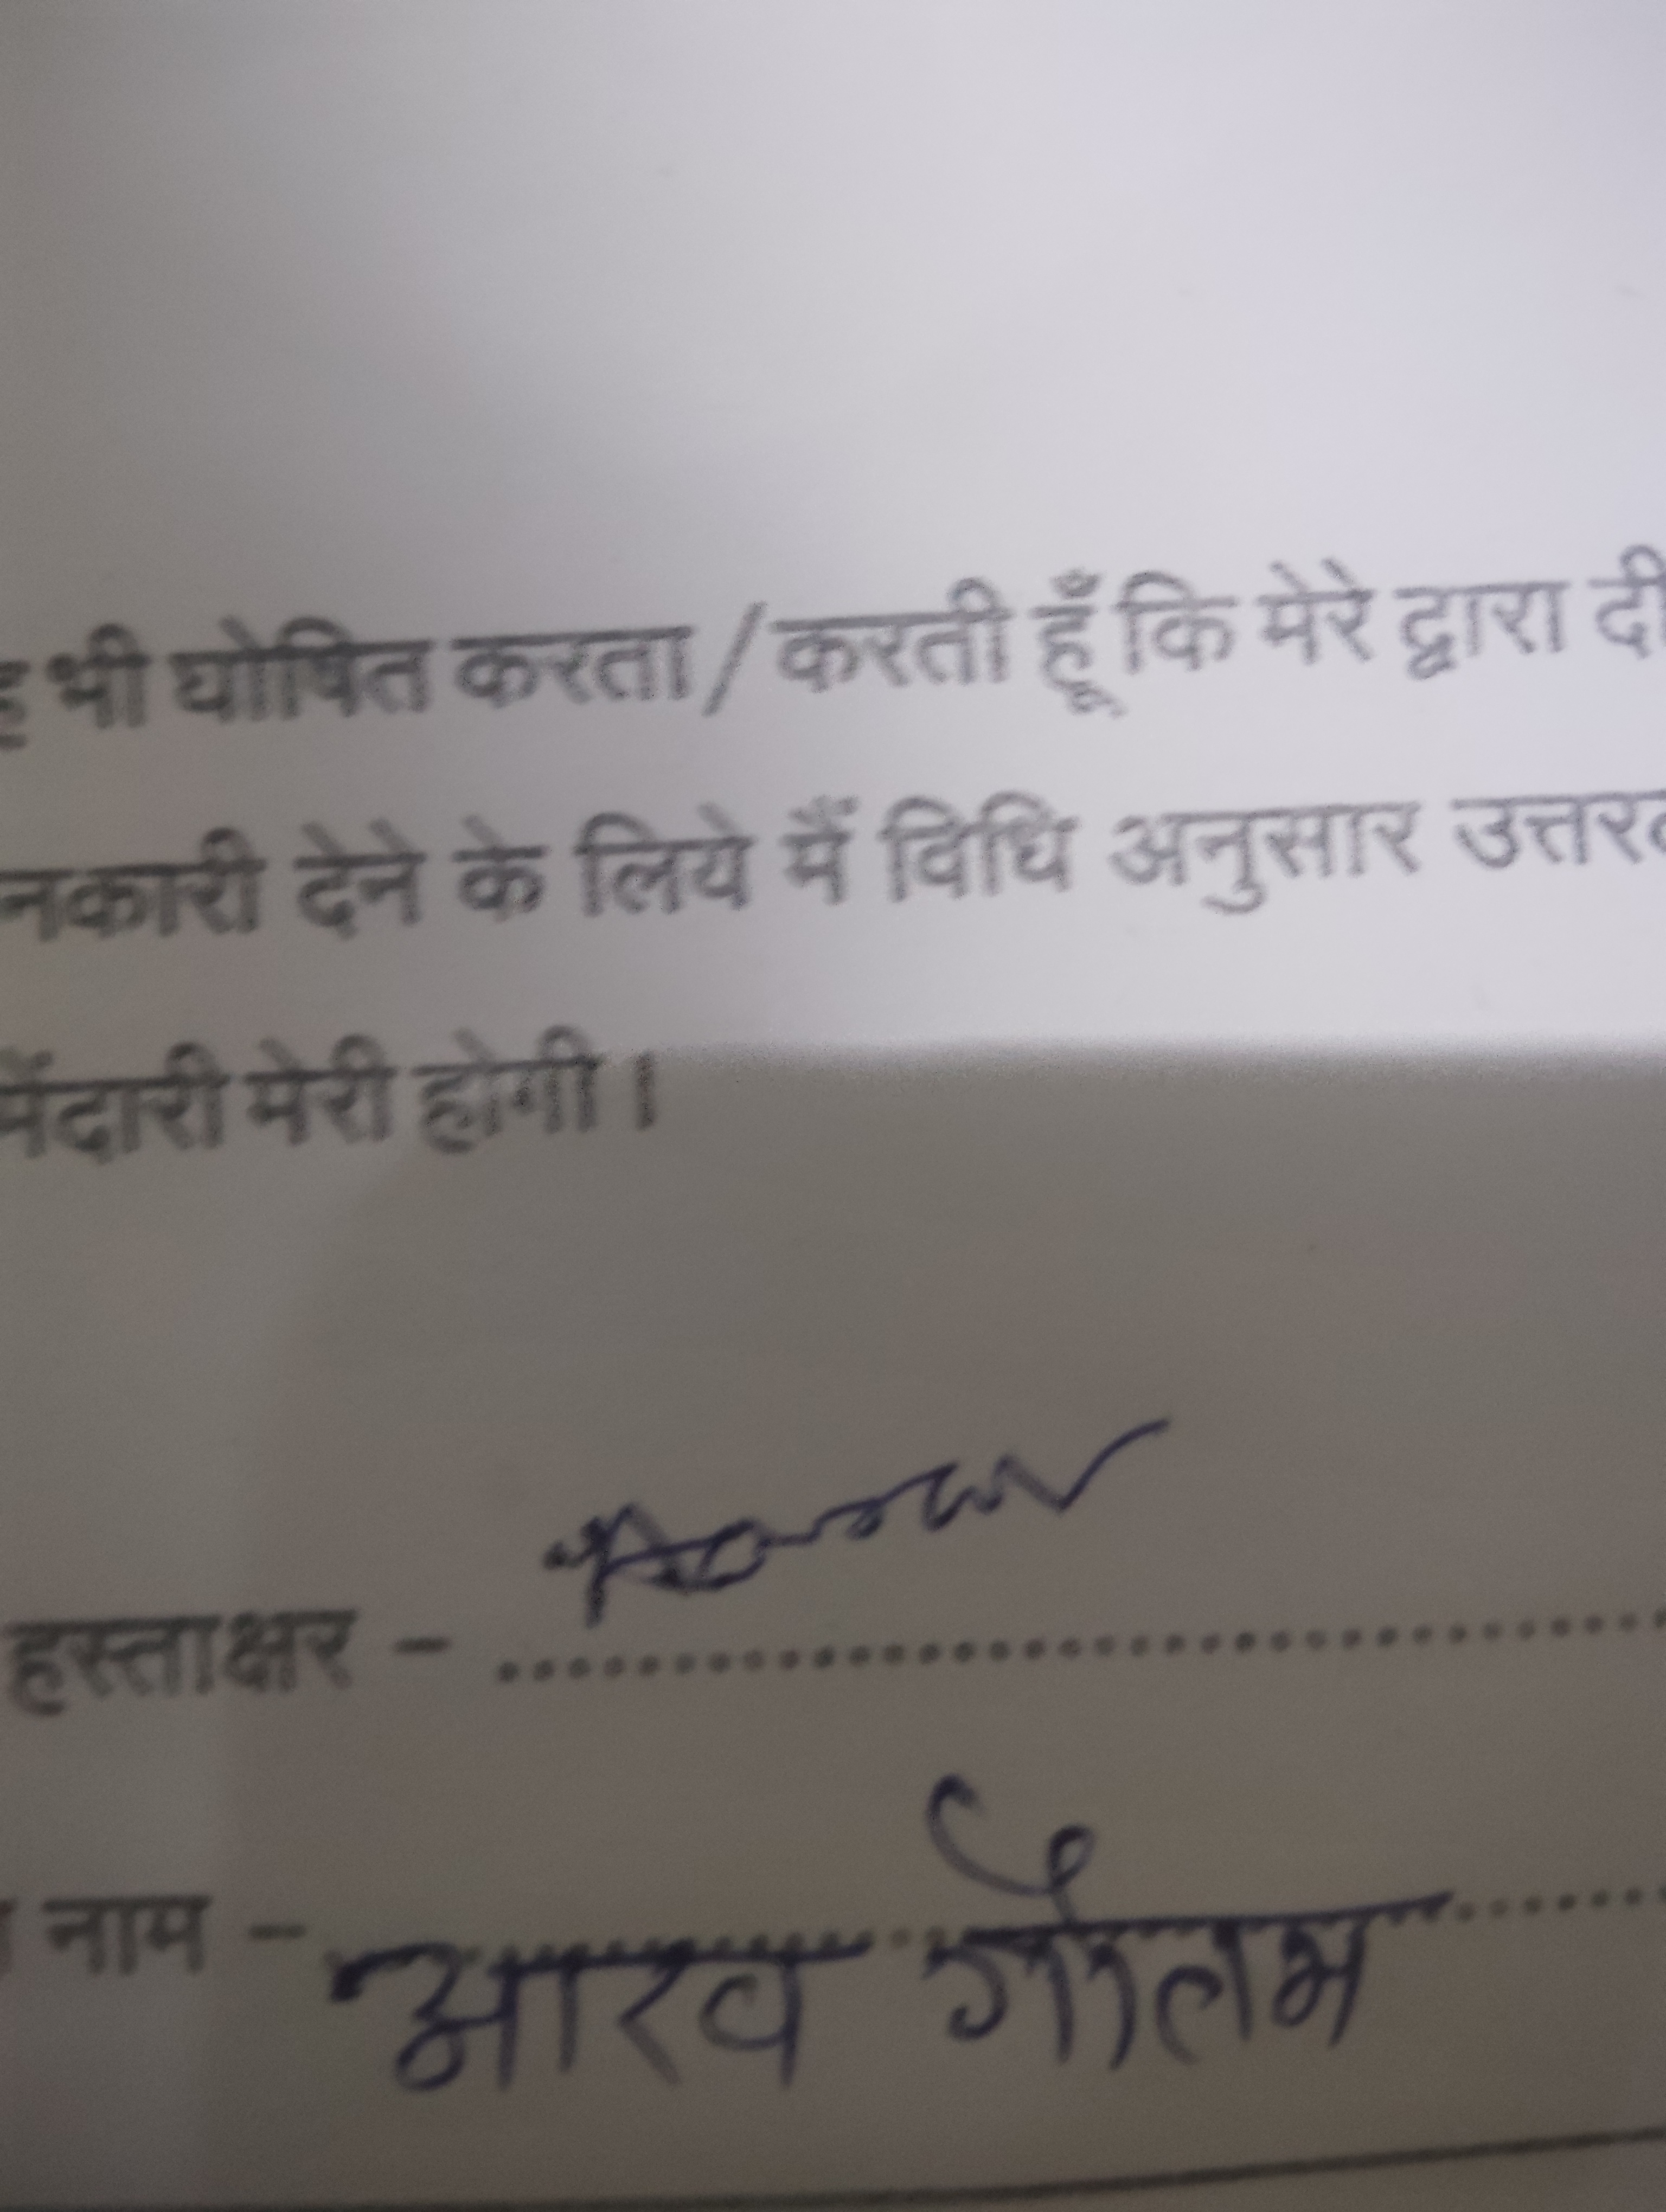 भी घोषित करता/करती हूँ कि मेरे द्वारा दी
नकारी देने के लिये मैं विधि अनुसार उत्तर
मेंदारी मेरी होगी।
हस्ताक्षर -
नाम - आरव गौतम